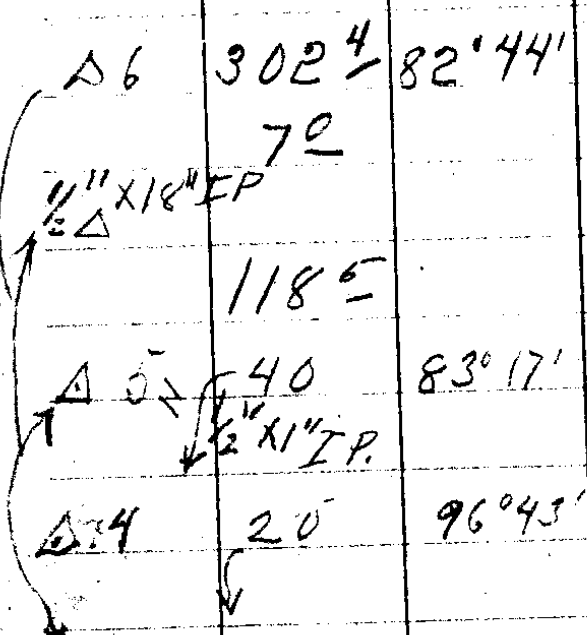 Δ 6 302 4 82°44'
7 0
1/2" X18" IP
Δ
118 5
Δ 5 40 83° 17'
1/2" X1" I.P.
Δ 4 20 96°43'